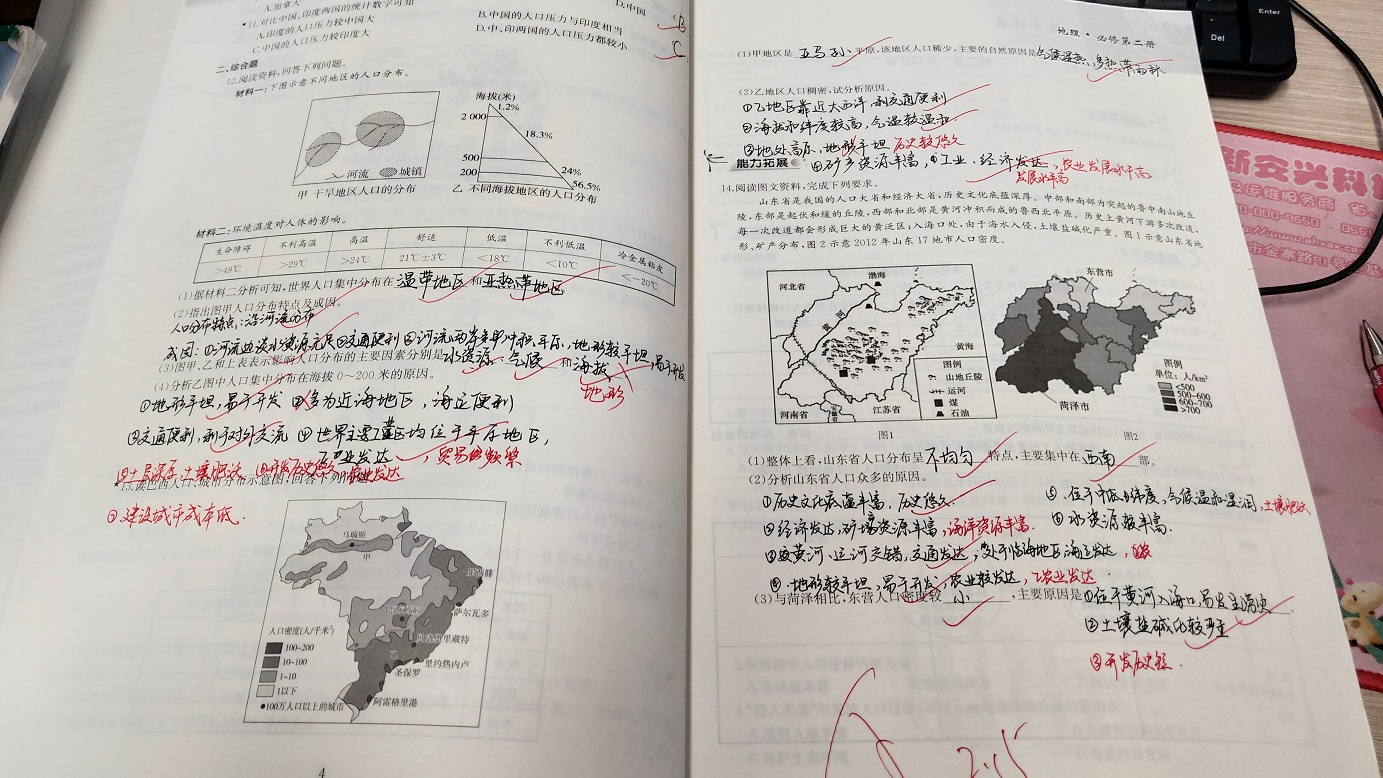 A.加拿大
D.中国
*11.对比中国、印度两国的统计数字可知
A.印度的人口压力较中国大
B.中国的人口压力与印度相当
C.中国的人口压力较印度大
D.中、印两国的人口压力都较小
B
C
二、综合题
12.阅读资料,回答下列问题。
材料一:下图示意不同地区的人口分布。
河流 城镇
甲 干旱地区人口的分布
海拔(米)
2 000
500
200
1.2%
18.3%
24%
56.5%
乙 不同海拔地区的人口分布
材料二:环境温度对人体的影响。
生命障碍 不利高温 高温 舒适 低温 不利低温 冷金属粘皮
>49℃ >29℃ >24℃ 21℃±3℃ <18℃ <10℃ <-20℃
(1)据材料二分析可知,世界人口集中分布在温带地区和亚热带地区
(2)指出图甲人口分布特点及成因。
人口分布特点:沿河流分布
成因:①河流边淡水资源充足②交通便利③河流两岸多冲积平原,地形较平坦,易于开发
(3)图甲、乙和上表表示影响人口分布的主要因素分别是水资源、气候和海拔
地形
(4)分析乙图中人口集中分布在海拔0~200米的原因。
①地形平坦,易于开发 ②多为近海地区,海运便利
③交通便利,利于对外交流 ④世界主要工业区均位于平原地区,
工业发达,贸易频繁
土层深厚,土壤肥沃 开发历史悠久 农业发达
*13.读巴西人口、城市分布示意图,回答下列问题。
建设城市成本低.
马瑙斯
甲
累西腓
萨尔瓦多
贝洛奥里藏特
里约热内卢
圣保罗
阿雷格里港
乙
人口密度(人/千米²)
100-200
10-100
1-10
1以下
●100万人口以上的城市
4
地理·必修第二册
(1)甲地区是亚马孙平原,该地区人口稀少,主要的自然原因是气候湿热,多热带雨林
(2)乙地区人口稠密,试分析原因。
①乙地区靠近大西洋,利交通便利
②海拔和纬度较高,气温较温和
③地处高原,地形平坦 历史较悠久
④矿产资源丰富,工业、经济发达,农业发展水平高
发展水平高
能力拓展
14.阅读图文资料,完成下列要求。
山东省是我国的人口大省和经济大省,历史文化底蕴深厚。中部和南部为突起的鲁中南山地丘
陵,东部是起伏和缓的丘陵,西部和北部是黄河冲积而成的鲁西北平原。历史上黄河下游多次改道,
每一次改道都会形成巨大的黄泛区;入海口处,由于海水入侵,土壤盐碱化严重。图1示意山东省地
形、矿产分布,图2示意2012年山东17地市人口密度。
河北省
渤海
黄河
黄海
河南省
江苏省
图例
山地丘陵
运河
煤
石油
图1
东营市
菏泽市
图例
单位:人/km²
<500
500-600
600-700
>700
图2
(1)整体上看,山东省人口分布呈不均匀特点,主要集中在西南部。
(2)分析山东省人口众多的原因。
①历史文化底蕴丰富,历史悠久
②经济发达,矿产资源丰富,海洋资源丰富.
③黄河、运河交错,交通发达,处于临海地区,海运发达,
④地形较平坦,易于开发,农业较发达,工农业发达
⑤位于中低纬度,气候温和湿润,土壤肥沃
⑥水资源较丰富.
(3)与菏泽相比,东营人口密度较小,主要原因是①位于黄河入海口,易发生洪灾。
②土壤盐碱化较严重
③开发历史短.
2.15
Enter
Del
新安兴科技